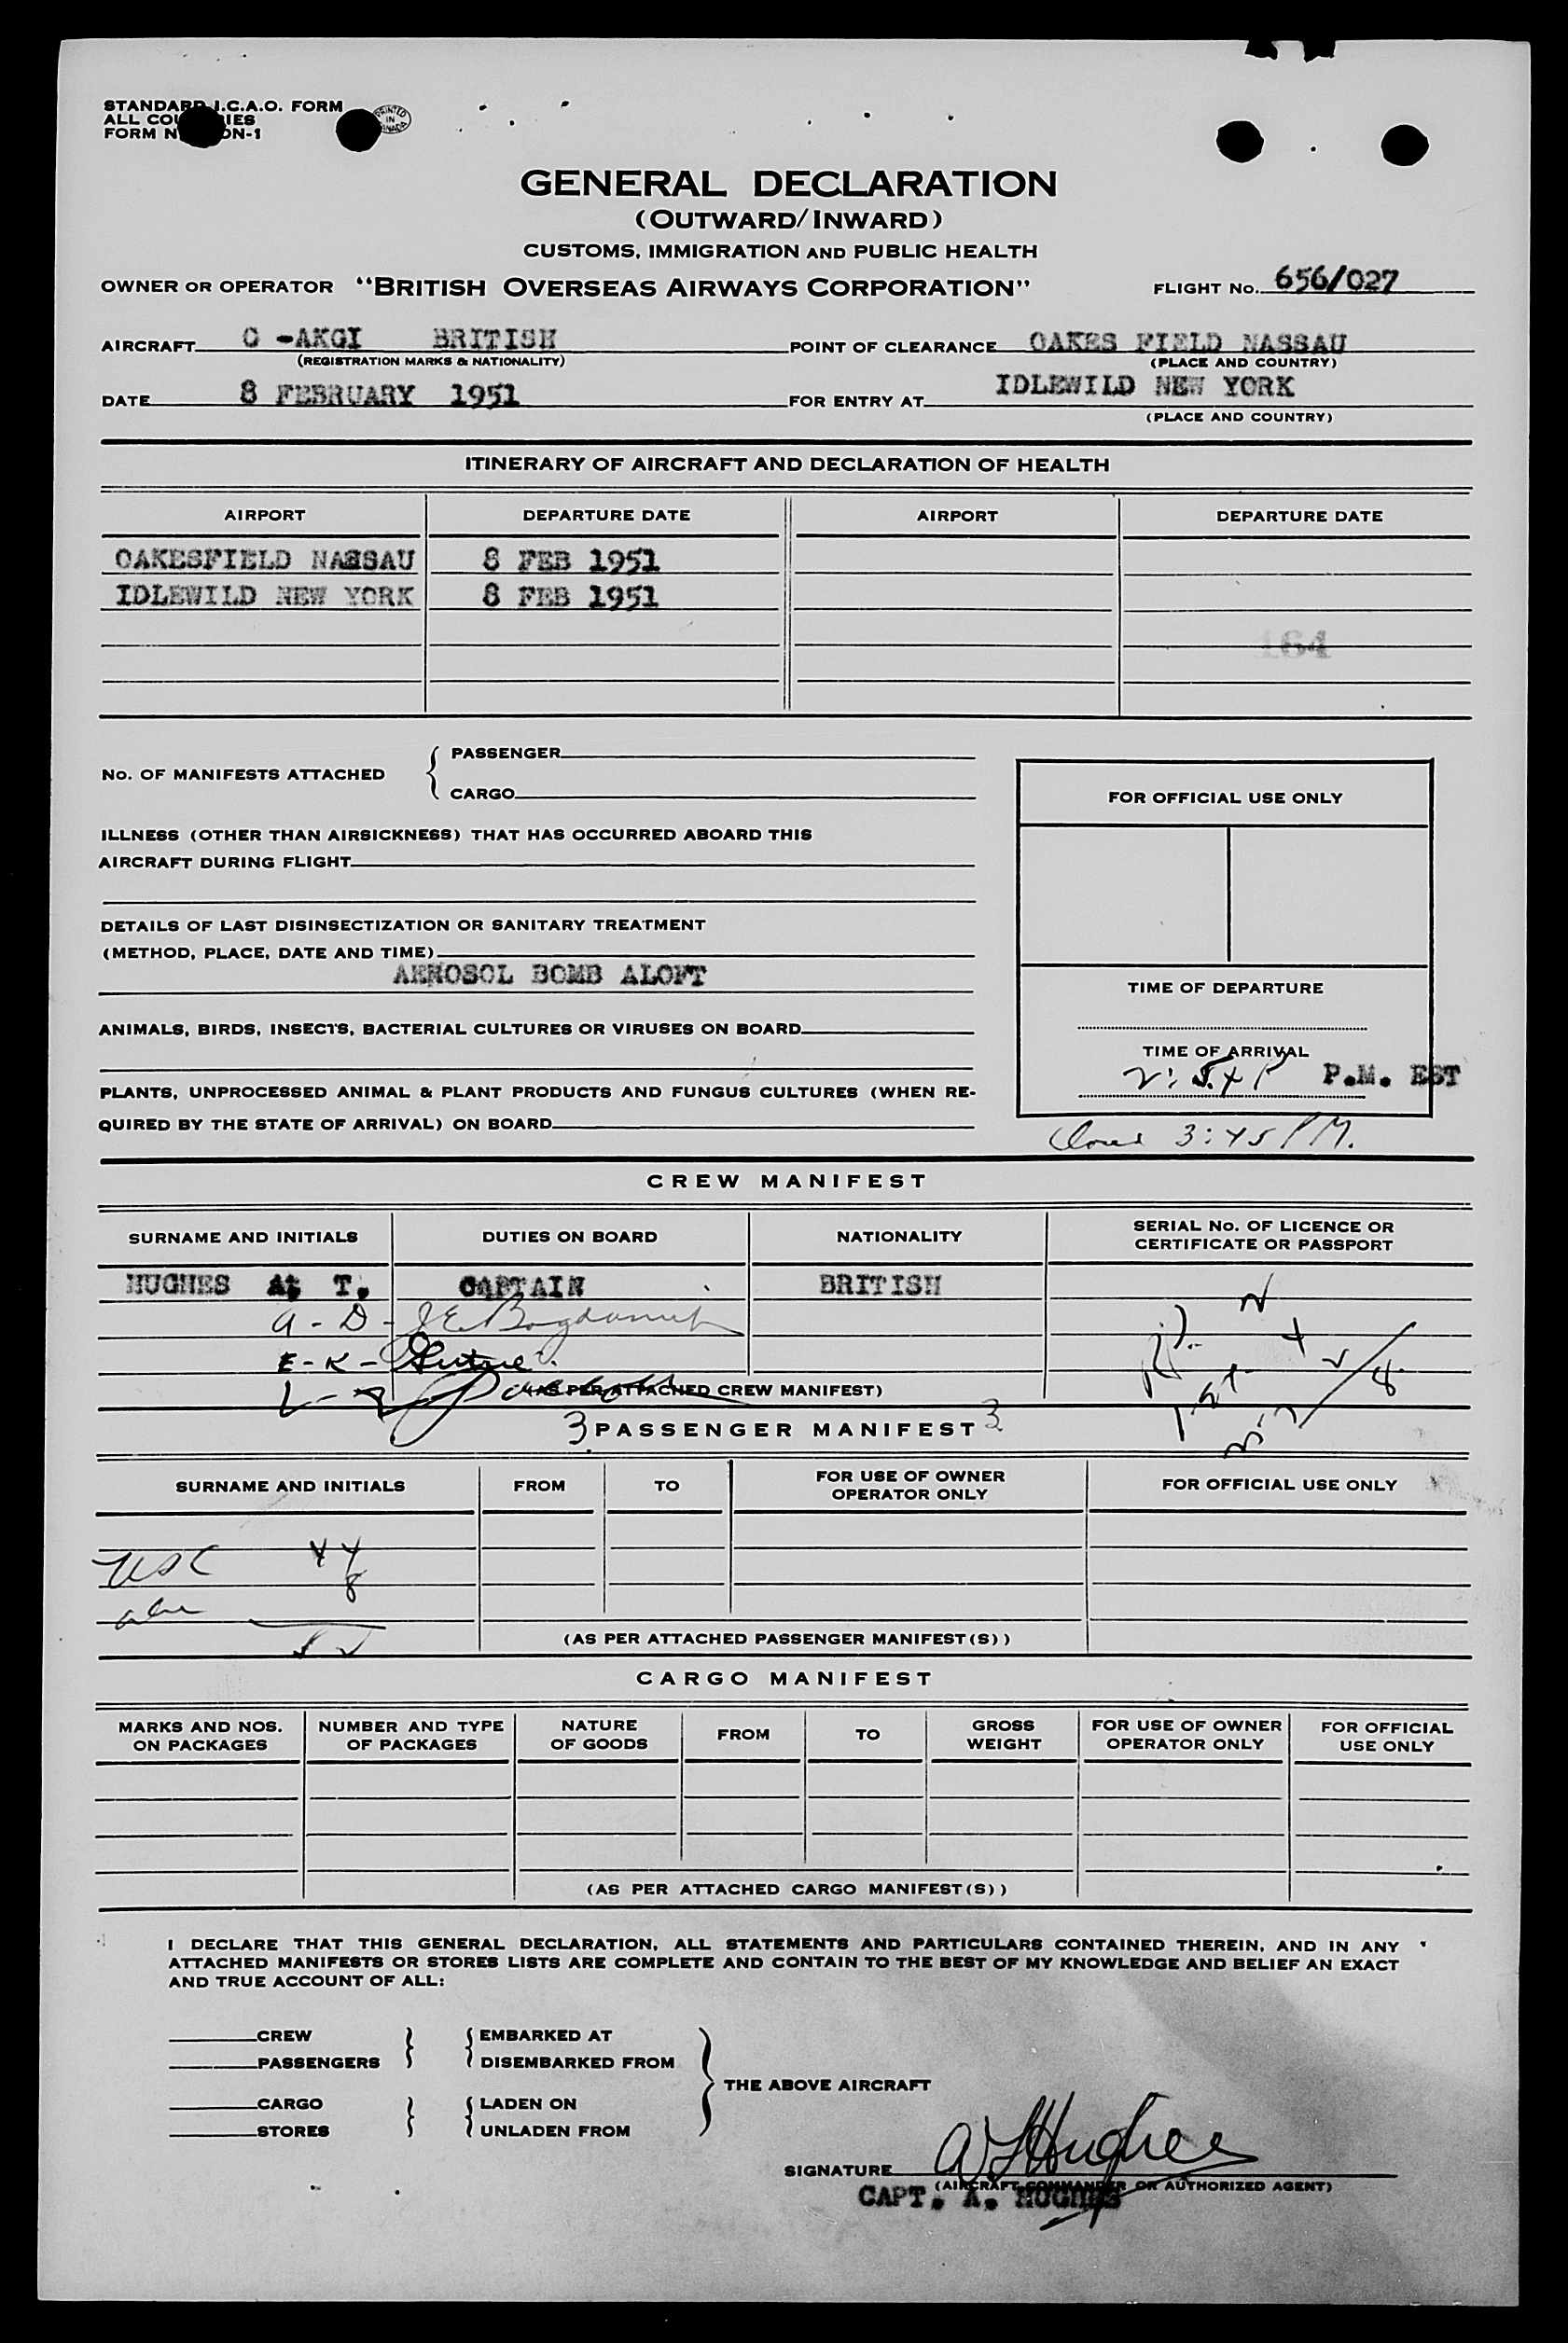 STANDARD I.C.A.O. FORM
ALL COU IES
FORM N ON-1
PRINTED IN CANADA
GENERAL DECLARATION
(OUTWARD/INWARD)
CUSTOMS, IMMIGRATION AND PUBLIC HEALTH
OWNER OR OPERATOR "BRITISH OVERSEAS AIRWAYS CORPORATION" FLIGHT No. 656/027
AIRCRAFT G -AKGI BRITISH POINT OF CLEARANCE OAKES FIELD NASSAU
(REGISTRATION MARKS & NATIONALITY) (PLACE AND COUNTRY)
DATE 8 FEBRUARY 1951 FOR ENTRY AT IDLEWILD NEW YORK
(PLACE AND COUNTRY)
ITINERARY OF AIRCRAFT AND DECLARATION OF HEALTH
AIRPORT DEPARTURE DATE AIRPORT DEPARTURE DATE
OAKESFIELD NASSAU 8 FEB 1951
IDLEWILD NEW YORK 8 FEB 1951
164
No. OF MANIFESTS ATTACHED { PASSENGER
CARGO
FOR OFFICIAL USE ONLY
ILLNESS (OTHER THAN AIRSICKNESS) THAT HAS OCCURRED ABOARD THIS
AIRCRAFT DURING FLIGHT
DETAILS OF LAST DISINSECTIZATION OR SANITARY TREATMENT
(METHOD, PLACE, DATE AND TIME)
AEROSOL BOMB ALOFT
TIME OF DEPARTURE
ANIMALS, BIRDS, INSECTS, BACTERIAL CULTURES OR VIRUSES ON BOARD
TIME OF ARRIVAL
P.M. EST
PLANTS, UNPROCESSED ANIMAL & PLANT PRODUCTS AND FUNGUS CULTURES (WHEN RE-
QUIRED BY THE STATE OF ARRIVAL) ON BOARD
3:45 PM.
CREW MANIFEST
SURNAME AND INITIALS DUTIES ON BOARD NATIONALITY SERIAL No. OF LICENCE OR
CERTIFICATE OR PASSPORT
HUGHES A. T. CAPTAIN BRITISH
A - D -
E - K -
L - Z
(AS PER ATTACHED CREW MANIFEST)
3 PASSENGER MANIFEST 3
SURNAME AND INITIALS FROM TO FOR USE OF OWNER
OPERATOR ONLY FOR OFFICIAL USE ONLY
USC 44
8
(AS PER ATTACHED PASSENGER MANIFEST(S))
CARGO MANIFEST
MARKS AND NOS.
ON PACKAGES NUMBER AND TYPE
OF PACKAGES NATURE
OF GOODS FROM TO GROSS
WEIGHT FOR USE OF OWNER
OPERATOR ONLY FOR OFFICIAL
USE ONLY
(AS PER ATTACHED CARGO MANIFEST(S))
I DECLARE THAT THIS GENERAL DECLARATION, ALL STATEMENTS AND PARTICULARS CONTAINED THEREIN, AND IN ANY
ATTACHED MANIFESTS OR STORES LISTS ARE COMPLETE AND CONTAIN TO THE BEST OF MY KNOWLEDGE AND BELIEF AN EXACT
AND TRUE ACCOUNT OF ALL:
CREW } { EMBARKED AT
PASSENGERS DISEMBARKED FROM
} THE ABOVE AIRCRAFT
CARGO } { LADEN ON
STORES UNLADEN FROM
SIGNATURE A T Hughes
(AIRCRAFT COMMANDER OR AUTHORIZED AGENT)
CAPT. A. HUGHES